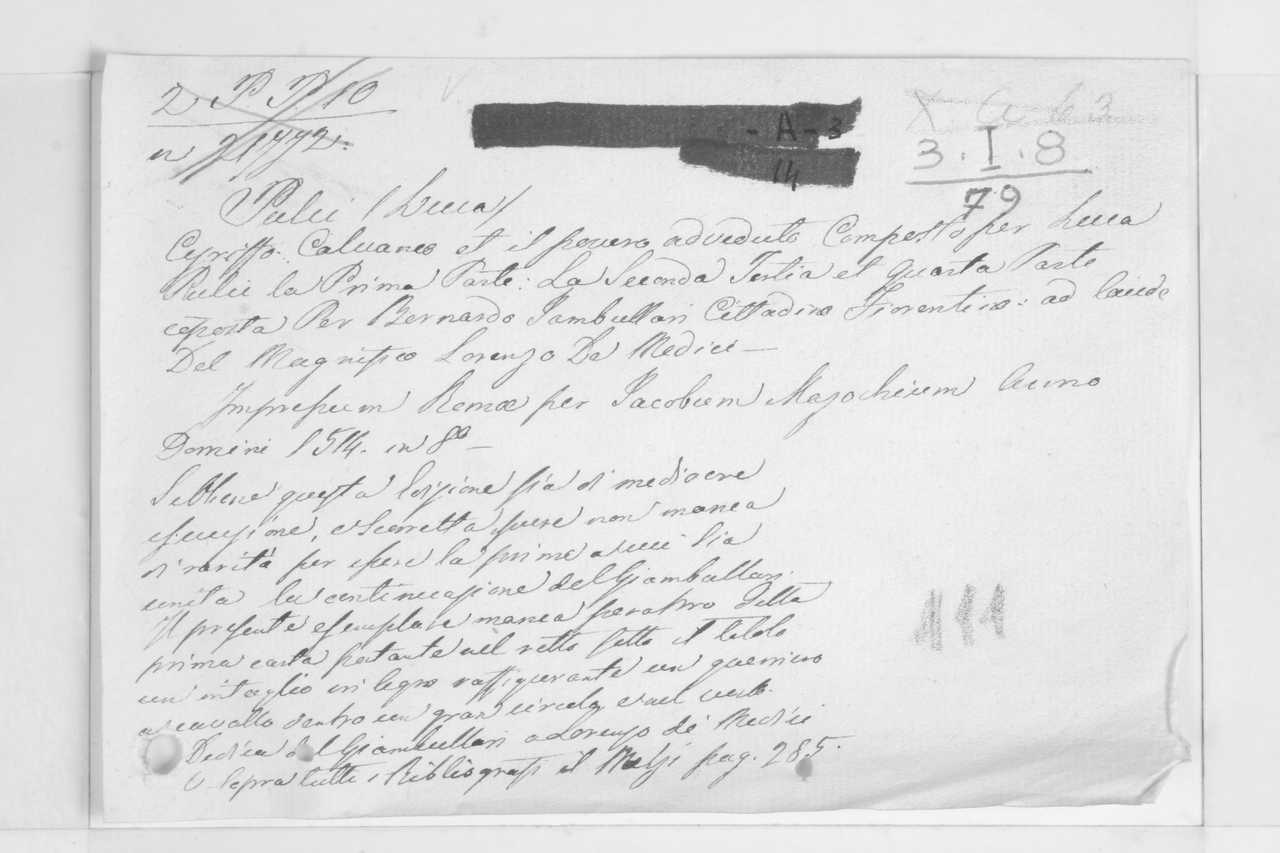 2 P P 10
n 21772.
- A - 3
14
X a b 3
3 . I . 8
79
Pulci (Luca)
Cyriffo: Calvaneo et il povero adveduto Composto per Luca
Pulci la Prima Parte: La Seconda Tertia et Quarta Parte
cõposta Per Bernardo Jambullari Cittadino Fiorentino: ad laude
Del Magnifico Lorenzo De Medici —
Impressum Romæ per Jacobum Mazochium Anno
Domini 1514. in 8º —
Sebbene questa Edizione sia di mediocre
esecuzione, e scorretta pure non manca
di rarità per essere la prima a cui sia
unita la continuazione del Giambullari.
Il presente esemplare manca peraltro della
prima carta portante nel retto sotto il titolo
un intaglio in legno raffigurante un guerriero
a cavallo dentro un gran circolo, e nel verso
Dedica del Giambullari a Lorenzo de' Medici
V. sopra tutti i Bibliografi il Melzi pag. 285.